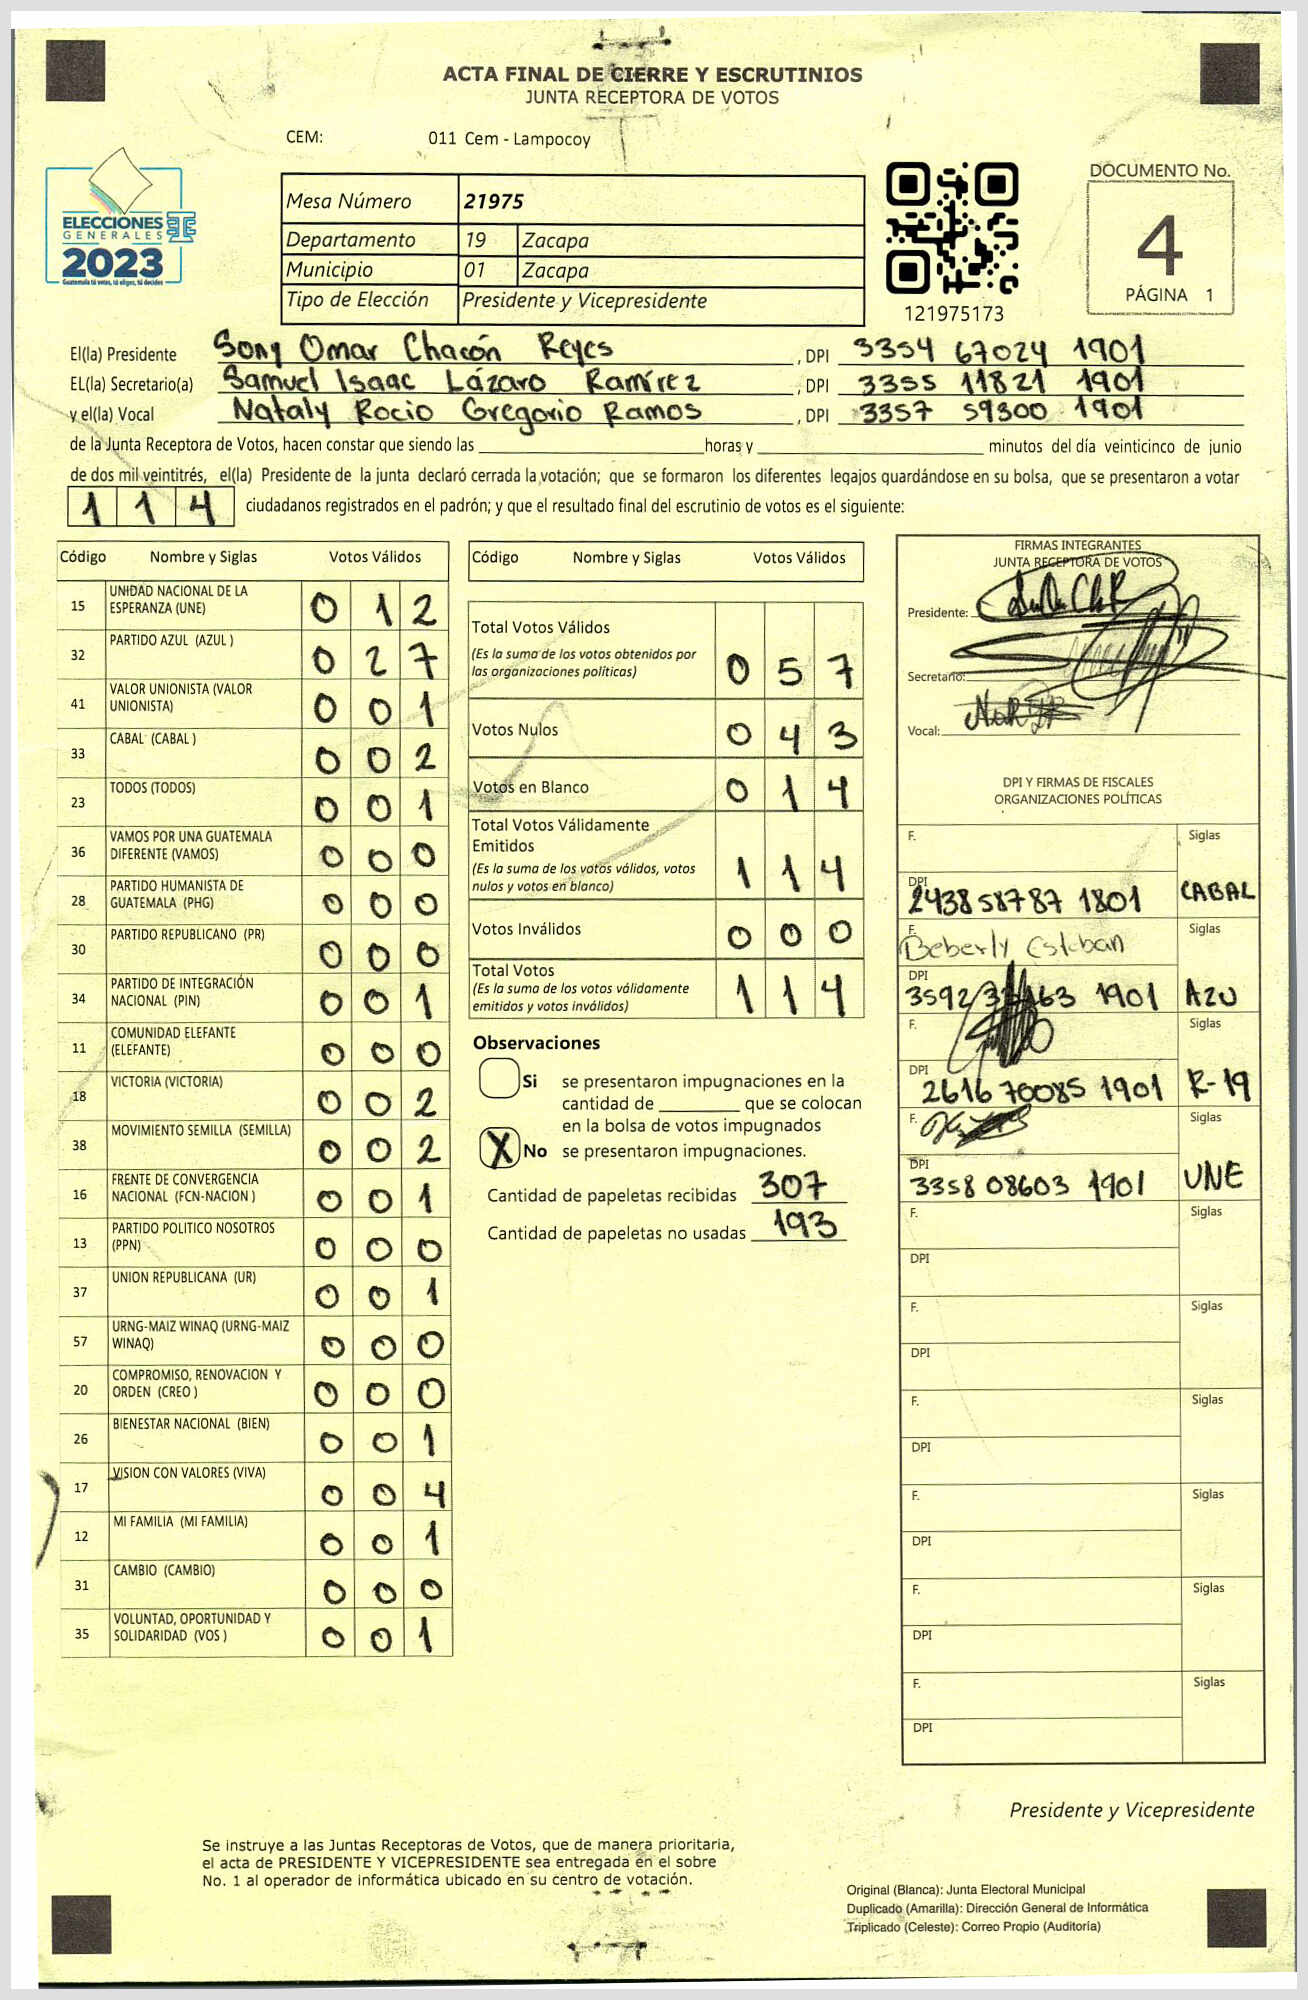 ACTA FINAL DE CIERRE Y ESCRUTINIOS
JUNTA RECEPTORA DE VOTOS
CEM: 011 Cem - Lampocoy
ELECCIONES
GENERALES
2023
Guatemala tú votas, tú eliges, tú decides
Mesa Número 21975
Departamento 19 Zacapa
Municipio 01 Zacapa
Tipo de Elección Presidente y Vicepresidente
121975173
DOCUMENTO No.
4
PÁGINA 1
El(la) Presidente Sony Omar Chacón Reyes, DPI 3354 67024 1901
EL(la) Secretario(a) Samuel Isaac Lázaro Ramírez, DPI 3355 11821 1901
y el(la) Vocal Nataly Rocio Gregorio Ramos, DPI 3357 59300 1901
de la Junta Receptora de Votos, hacen constar que siendo las horas y minutos del día veinticinco de junio
de dos mil veintitrés, el(la) Presidente de la junta declaró cerrada la votación; que se formaron los diferentes legajos guardándose en su bolsa, que se presentaron a votar
114 ciudadanos registrados en el padrón; y que el resultado final del escrutinio de votos es el siguiente:
Código Nombre y Siglas Votos Válidos
15 UNIDAD NACIONAL DE LA ESPERANZA (UNE) 0 1 2
32 PARTIDO AZUL (AZUL ) 0 2 7
41 VALOR UNIONISTA (VALOR UNIONISTA) 0 0 1
33 CABAL (CABAL ) 0 0 2
23 TODOS (TODOS) 0 0 1
36 VAMOS POR UNA GUATEMALA DIFERENTE (VAMOS) 0 0 0
28 PARTIDO HUMANISTA DE GUATEMALA (PHG) 0 0 0
30 PARTIDO REPUBLICANO (PR) 0 0 0
34 PARTIDO DE INTEGRACIÓN NACIONAL (PIN) 0 0 1
11 COMUNIDAD ELEFANTE (ELEFANTE) 0 0 0
18 VICTORIA (VICTORIA) 0 0 2
38 MOVIMIENTO SEMILLA (SEMILLA) 0 0 2
16 FRENTE DE CONVERGENCIA NACIONAL (FCN-NACION ) 0 0 1
13 PARTIDO POLITICO NOSOTROS (PPN) 0 0 0
37 UNION REPUBLICANA (UR) 0 0 1
57 URNG-MAIZ WINAQ (URNG-MAIZ WINAQ) 0 0 0
20 COMPROMISO, RENOVACION Y ORDEN (CREO ) 0 0 0
26 BIENESTAR NACIONAL (BIEN) 0 0 1
17 VISION CON VALORES (VIVA) 0 0 4
12 MI FAMILIA (MI FAMILIA) 0 0 1
31 CAMBIO (CAMBIO) 0 0 0
35 VOLUNTAD, OPORTUNIDAD Y SOLIDARIDAD (VOS ) 0 0 1
Código Nombre y Siglas Votos Válidos
Total Votos Válidos
(Es la suma de los votos obtenidos por
las organizaciones políticas) 0 5 7
Votos Nulos 0 4 3
Votos en Blanco 0 1 4
Total Votos Válidamente
Emitidos
(Es la suma de los votos válidos, votos
nulos y votos en blanco) 1 1 4
Votos Inválidos 0 0 0
Total Votos
(Es la suma de los votos válidamente
emitidos y votos inválidos) 1 1 4
Observaciones
Si se presentaron impugnaciones en la
cantidad de que se colocan
en la bolsa de votos impugnados
X No se presentaron impugnaciones.
Cantidad de papeletas recibidas 307
Cantidad de papeletas no usadas 193
FIRMAS INTEGRANTES
JUNTA RECEPTORA DE VOTOS
Presidente:
Secretario:
Vocal:
DPI Y FIRMAS DE FISCALES
ORGANIZACIONES POLÍTICAS
F. Siglas
DPI 2438 58787 1801 CABAL
F. Beberly Esteban Siglas
DPI 3592 1901 AZU
F. Siglas
DPI 2616 70085 1901 R-19
F. Siglas
DPI 3358 08603 1901 UNE
F. Siglas
DPI
F. Siglas
DPI
F. Siglas
DPI
F. Siglas
DPI
F. Siglas
DPI
F. Siglas
DPI
Presidente y Vicepresidente
Se instruye a las Juntas Receptoras de Votos, que de manera prioritaria,
el acta de PRESIDENTE Y VICEPRESIDENTE sea entregada en el sobre
No. 1 al operador de informática ubicado en su centro de votación.
Original (Blanca): Junta Electoral Municipal
Duplicado (Amarilla): Dirección General de Informática
Triplicado (Celeste): Correo Propio (Auditoría)